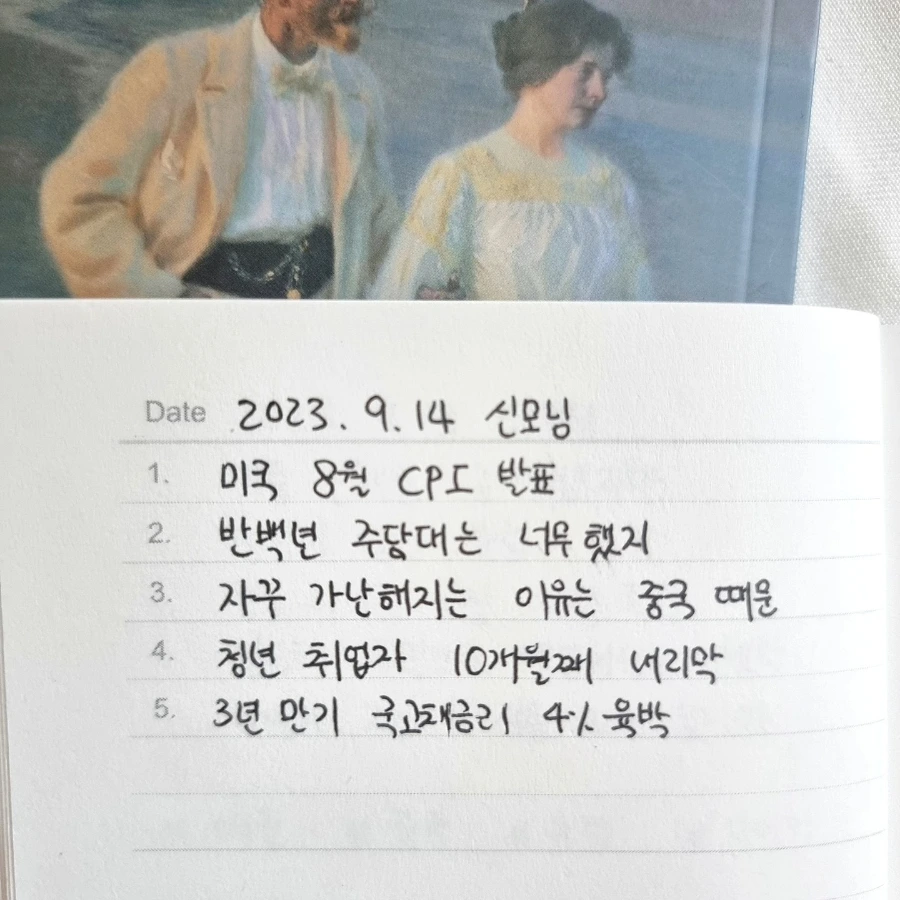 Date 2023. 9. 14 신모닝
1. 미국 8월 CPI 발표
2. 반백년 주담대는 너무했지
3. 자꾸 가난해지는 이유는 중국 때문
4. 청년 취업자 10개월째 내리막
5. 3년 만기 국고채금리 4% 육박